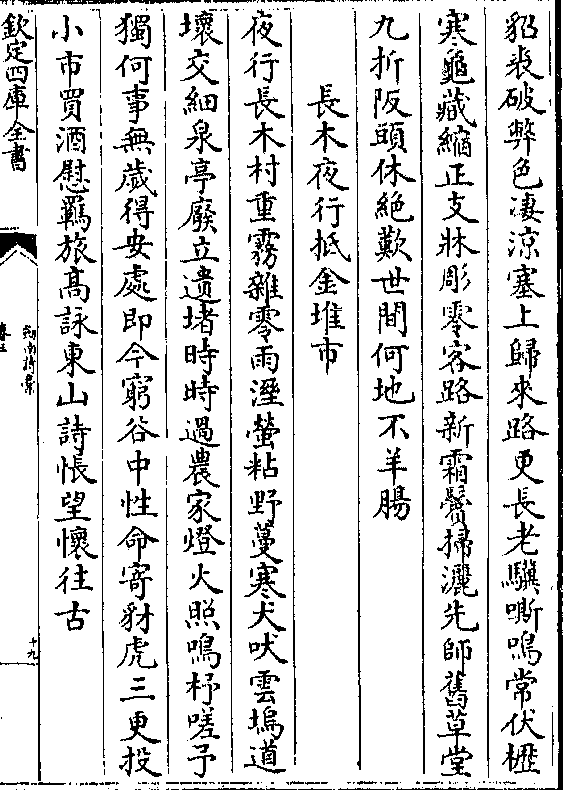 貂裘破弊色凄涼塞上歸來路更長老驥嘶鳴常伏櫪
寒龜藏縮正支牀彫零客路新霜鬢掃灑先師舊草堂
九折阪頭休絶歎世間何地不羊腸
長木夜行抵金堆市
夜行長木村重霧雜零雨溼螢粘野蔓寒犬吠雲塢道
壞交細泉亭廢立遺堵時時過農家燈火照鳴杼嗟予
獨何事無歲得安處即今窮谷中性命寄豺虎三更投
小市買酒慰羈旅高詠東山詩悵望懷往古
欽定四庫全書
劍南詩稾
卷三
十九